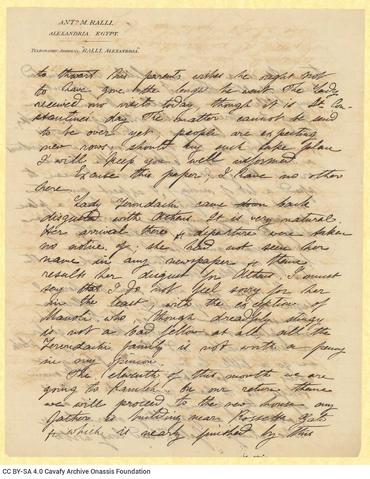 ANTᵒ M. RALLI.
ALEXANDRIA EGYPT.
TELEGRAPHIC ADDRESS, RALLI, ALEXANDRIA.
to thwart his parents wishes he ought not
to have gone to the length he went. The Lady
received no visits today though it is St. Con-
stantine's day. The matter cannot be said
to be over yet; people are expecting
new rows; should any such take place
I will keep you well informed.
Excuse this paper; I have no other
here.
Lady Zerondachi came back
disgusted with Athens. It is very natural.
Her arrival there & departure were taken
no notice of; she had not seen her
name in any newspaper & thence
results her disgust for Athens. I must
say that I do not feel sorry for her
in the least; with the exception of
Manoli who, though dreadfully stingy
is not a bad fellow at all, all the
Zerondachi family is not worth a penny
in my opinion.
The eleventh of this month we are
going to Ramleh. On our return thence
we will proceed to the new house my
father is building near Rossette Gate
& which is nearly finished by this
CC BY-SA 4.0 Cavafy Archive Onassis Foundation